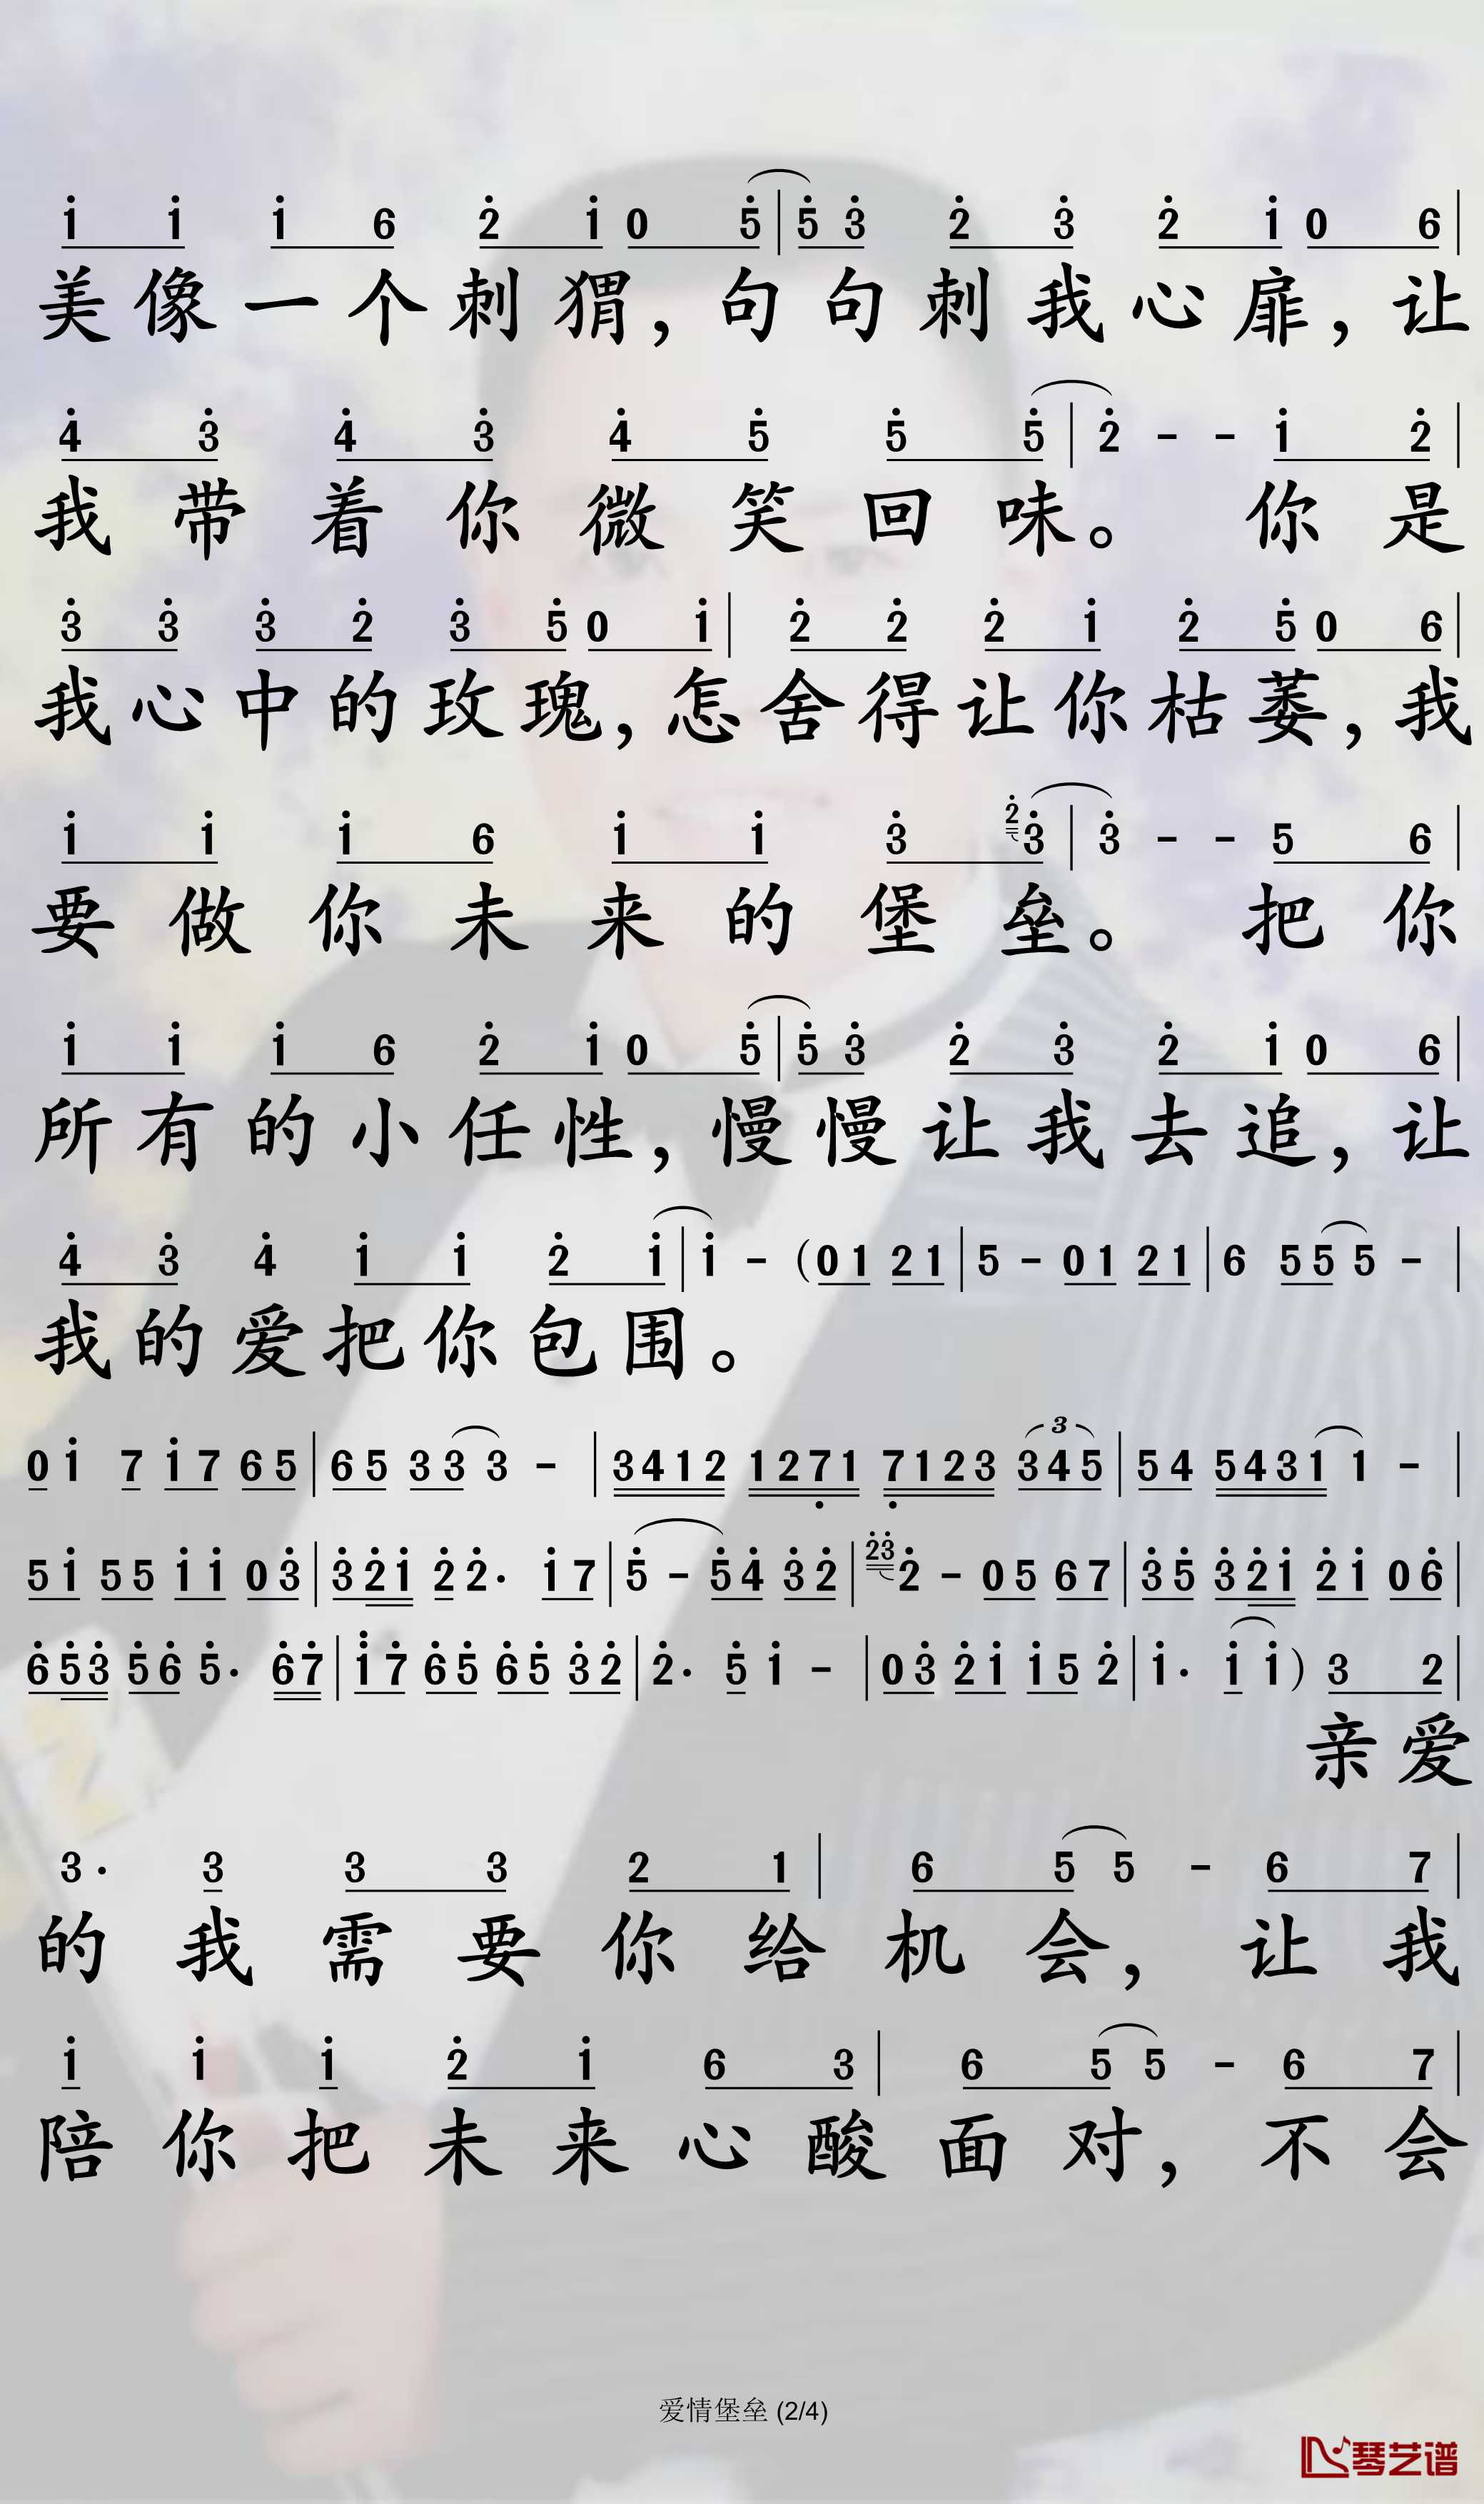 i i i 6 2̇ i 0 5̇ | 5̇ 3̇ 2̇ 3̇ 2̇ i 0 6 |
美像一个刺猬,句句刺我心扉,让
4̇ 3̇ 4̇ 3̇ 4̇ 5̇ 5̇ 5̇ | 2̇ - - i 2̇ |
我带着你微笑回味。你是
3̇ 3̇ 3̇ 2̇ 3̇ 5̇ 0 i | 2̇ 2̇ 2̇ i 2̇ 5̇ 0 6 |
我心中的玫瑰,怎舍得让你枯萎,我
i i i 6 i i 3̇ 2̇ 3̇ | 3̇ - - 5 6 |
要做你未来的堡垒。把你
i i i 6 2̇ i 0 5̇ | 5̇ 3̇ 2̇ 3̇ 2̇ i 0 6 |
所有的小任性,慢慢让我去追,让
4̇ 3̇ 4̇ i i 2̇ i | i - (0 1 2 1 | 5 - 0 1 2 1 | 6 5 5 5 - |
我的爱把你包围。
0 i 7 i 7 6 5 | 6 5 3 3 3 - | 3 4 1 2 1 2 7̣ 1 7̣ 1 2 3 3 4 5 3 | 5 4 5 4 3 1 1 - |
5 i 5 5 i i 0 3̇ | 3̇ 2̇ i 2̇ 2̇· i 7 | 5̇ - 5̇ 4̇ 3̇ 2̇ | 2̇ 3̇ 2̇ - 0 5 6 7 | 3̇ 5̇ 3̇ 2̇ i 2̇ i 0 6̇ |
6̇ 5̇ 3̇ 5̇ 6̇ 5̇· 6̇ 7̇ | i̇ 7̇ 6̇ 5̇ 6̇ 5̇ 3̇ 2̇ | 2̇· 5̇ i - | 0 3̇ 2̇ i i 5 2̇ | i· i i) 3 2 |
亲爱
3· 3 3 3 2 1 | 6 5 5 - 6 7 |
的我需要你给机会,让我
i i i 2̇ i 6 3 | 6 5 5 - 6 7 |
陪你把未来心酸面对,不会
爱情堡垒 (2/4)
琴艺谱